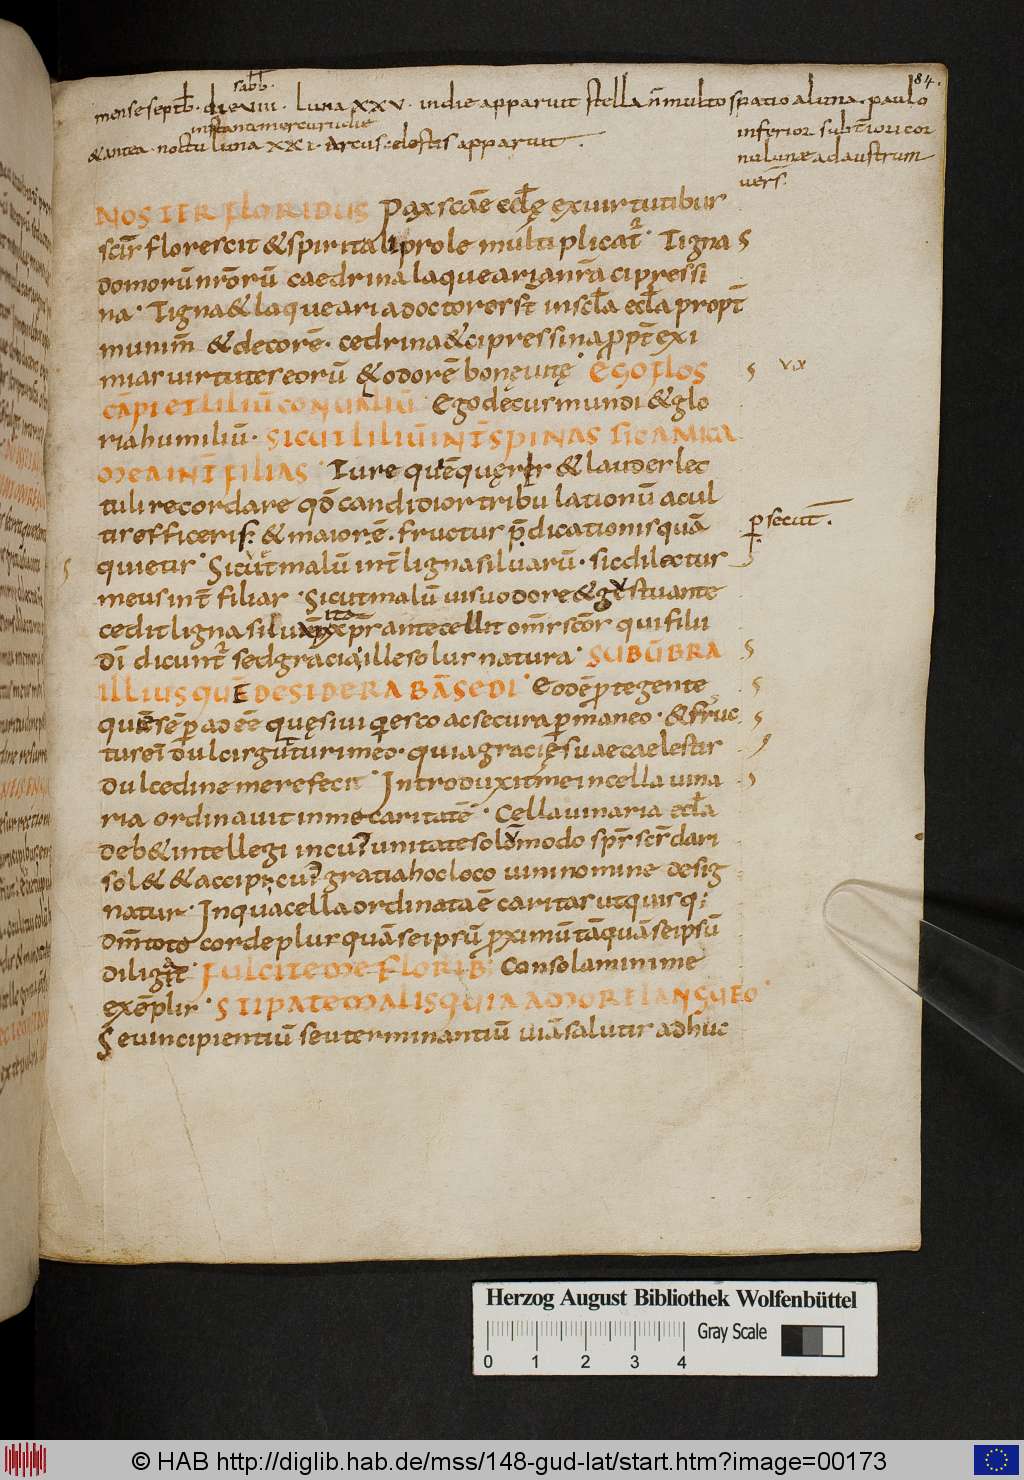 84.
sabb.
mense septb. die VIIII. luna XXV. in die apparuit stella n̄ multo spatio a luna. paulo
inferior sub t̄iori cor
nu lunae ad austrum
vers̄.
instante mercurii die
& antea noctu luna XXI. Arcus celestis apparuit.
NOSTER FLORIDUS Pax scāe eccl̄ę ex uirtutibus
sc̄ir florescit & spiritali prole multiplicat̄. Tigna
domorū nrōrū caedrina laquearia nrā cipressi
na. Tigna & laquearia doctores st̄ in scl̄a eccl̄a propt̄
munim̄ & decorē. cedrina & cipressina ꝓpt̄ exi
mias uirtutes eorū & odorē bonę uitę. EGO FLOS
CĀPI ET LILIŪ CONVALLIŪ Ego decus mundi & glo
ria humiliū. SICUT LILIŪ INT̄ SPINAS SIC AMICA
MEA INT̄ FILIAS. Iure quēquęrir & lauder lec
tuli recordare qd̄ candidior tribulationū acul
eis efficeris. & maiorē. fructus p̄dicationis quā
p̱secut̄.
quietis. Sicut malū int̄ ligna siluarū. sic dilectus
meus int̄ filios. Sicut malū uisu odore & gustu ante
cedit ligna siluarū ita xp̄s antecellit om̄s sc̄os qui filii
dī dicunt̄ sed gracia ille solus natura. SUB ŪBRA
ILLIUS QUĒ DESIDERABĀ SEDI. Eodē ꝓtegente
quē sēp ad eē quęsiui q̄esco ac secura p̱maneo. & fruc
tus eī dulcis gut̄turi meo. quia gracię suae caelestis
dulcedine me refecit. Introduxit me in cella uina
ria ordinauit in me caritatē. Cella uinaria eccl̄a
deb& intellegi in cuꝰ unitate solōmodo sp̄s sc̄s dari
sol& & accipi. cuꝰ gratia hoc loco uini nomine desig
natur. In qua cella ordinata ē caritas ut quis q;
dm̄ toto corde plus quā seipsū ꝓximū tāquā seipsū
diligat. FULCITE ME FLORIB; Consolamini me
exēplis. STIPATE MALIS QUIA AMORE LANGUEO.
Seu incipientiū seu terminantiū uiā salutis adhuc
Herzog August Bibliothek Wolfenbüttel
0 1 2 3 4
Gray Scale
© HAB http://diglib.hab.de/mss/148-gud-lat/start.htm?image=00173